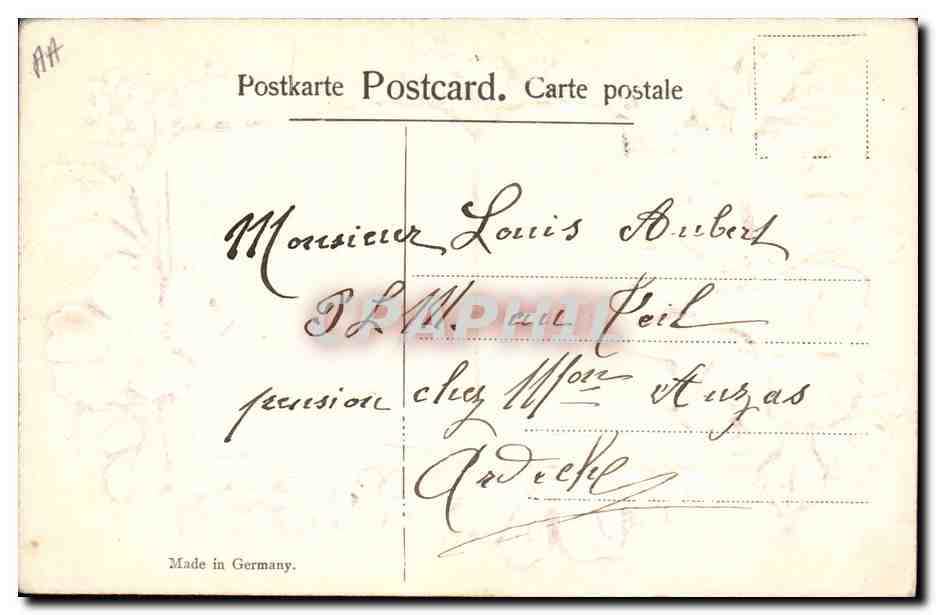 AA
Postkarte Postcard. Carte postale
Monsieur Louis Aubert
P L M. au Teil
pension chez Mon Auzas
Ardèche
Made in Germany.